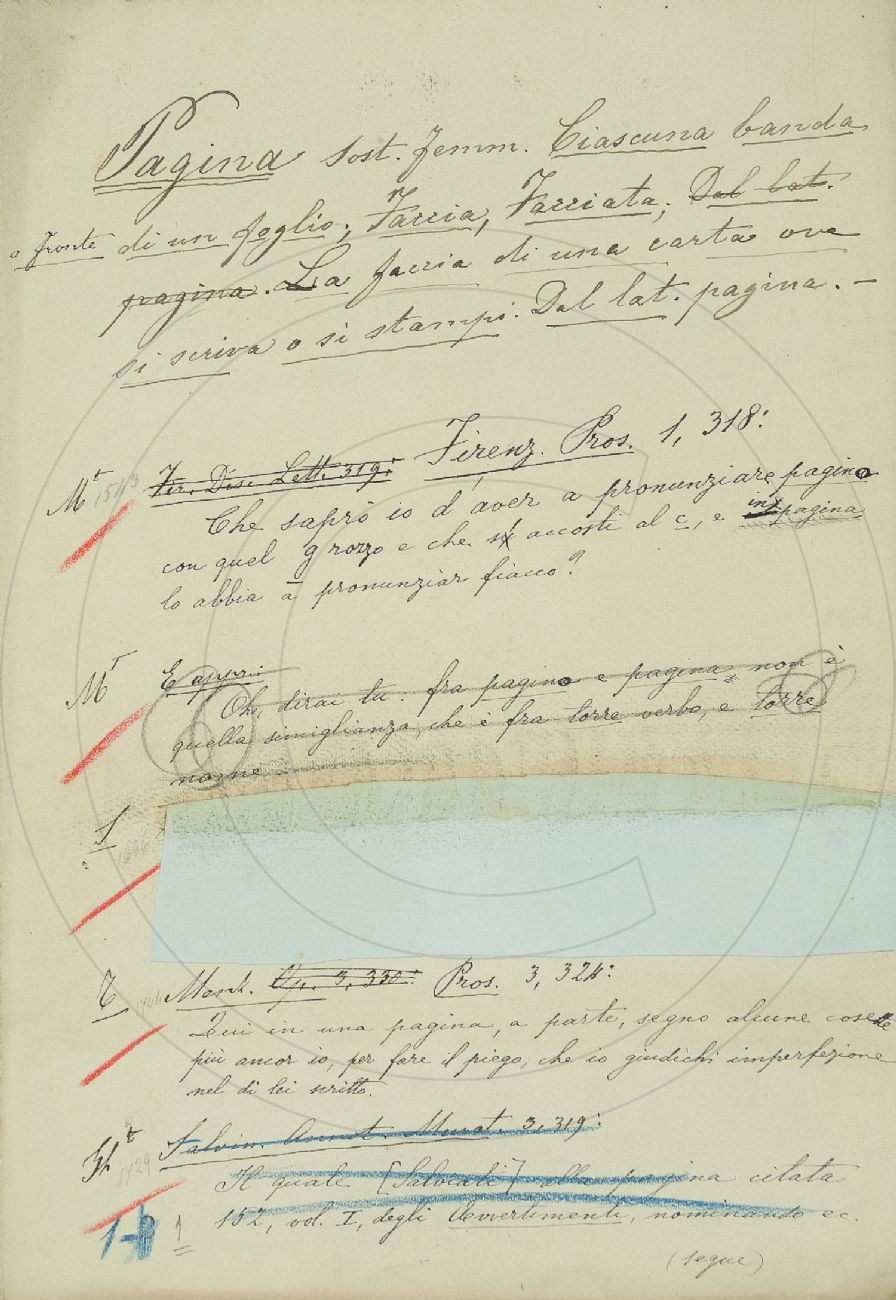 Pagina sost. femm. Ciascuna banda
o fronte di un foglio; Faccia, Facciata; Dal lat.
pagina. La faccia di una carta ove
si scriva o si stampi. Dal lat. pagina. –
Mt 1543 Fir. Dise. Lett. 319: Firenz. Pros. 1, 318:
Che saprò io d'aver a pronunziare pagino
con quel g rozzo e che si accosti al c, e in pagina
lo abbia a pronunziar fiacco?
MT E appr.:
Oh, dirai tu. fra pagino e pagina non è
quella simiglianza, che è fra torre verbo, e torre
nome
S
T Menz. Op. 3, 330: Pros. 3, 324:
Qui in una pagina, a parte, segno alcune cosette
più ancor io, per fare il piego, che io giudichi imperfezione
nel di lei scritto.
Salvin. Annot. Murat. 3, 319:
Il quale [Salviati] alla pagina citata
152, vol. I, degli Avvertimenti, nominando ec.
1
(segue)